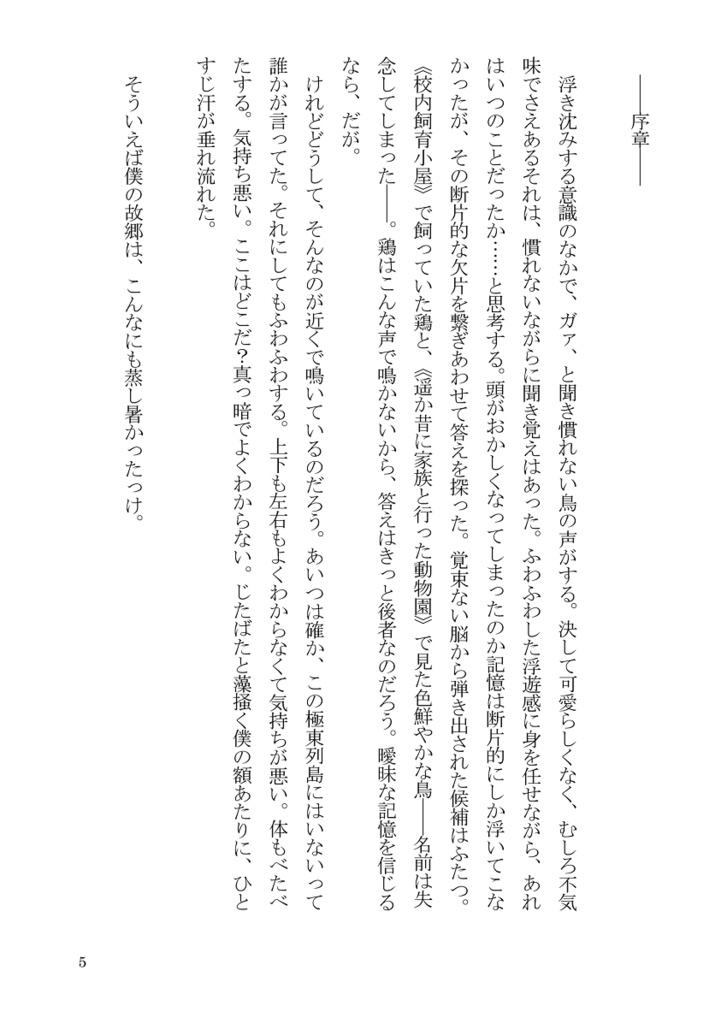 ――序章――
　浮き沈みする意識のなかで、ガァ、と聞き慣れない鳥の声がする。決して可愛らしくなく、むしろ不気
味でさえあるそれは、慣れないながらに聞き覚えはあった。ふわふわした浮遊感に身を任せながら、あれ
はいつのことだったか……と思考する。頭がおかしくなってしまったのか記憶は断片的にしか浮いてこな
かったが、その断片的な欠片を繋ぎあわせて答えを探った。覚束ない脳から弾き出された候補はふたつ。
《校内飼育小屋》で飼っていた鶏と、《遥か昔に家族と行った動物園》で見た色鮮やかな鳥――名前は失
念してしまった――。鶏はこんな声で鳴かないから、答えはきっと後者なのだろう。曖昧な記憶を信じる
なら、だが。
　けれどどうして、そんなのが近くで鳴いているのだろう。あいつは確か、この極東列島にはいないって
誰かが言ってた。それにしてもふわふわする。上下も左右もよくわからなくて気持ちが悪い。体もべたべ
たする。気持ち悪い。ここはどこだ？真っ暗でよくわからない。じたばたと藻掻く僕の額あたりに、ひと
すじ汗が垂れ流れた。
　そういえば僕の故郷は、こんなにも蒸し暑かったっけ。
5